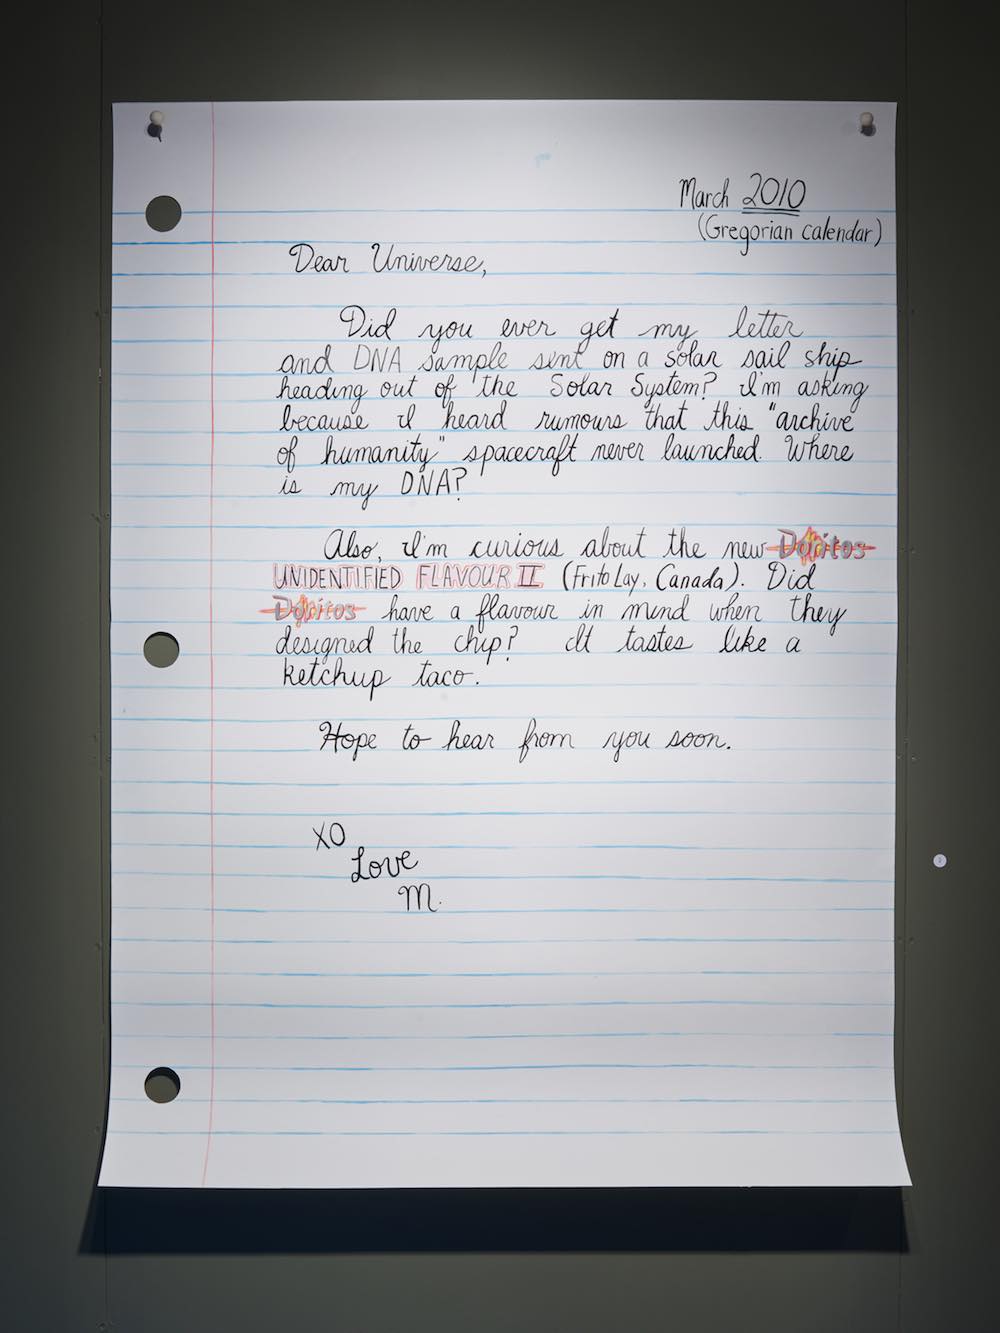 March 2010
(Gregorian calendar)
Dear Universe,
Did you ever get my letter
and DNA sample sent on a solar sail ship
heading out of the Solar System? I'm asking
because I heard rumours that this "archive
of humanity" spacecraft never launched. Where
is my DNA?
Also, I'm curious about the new Doritos
UNIDENTIFIED FLAVOUR II (Frito Lay, Canada). Did
Doritos have a flavour in mind when they
designed the chip? It tastes like a
ketchup taco.
Hope to hear from you soon.
XO
Love
M.